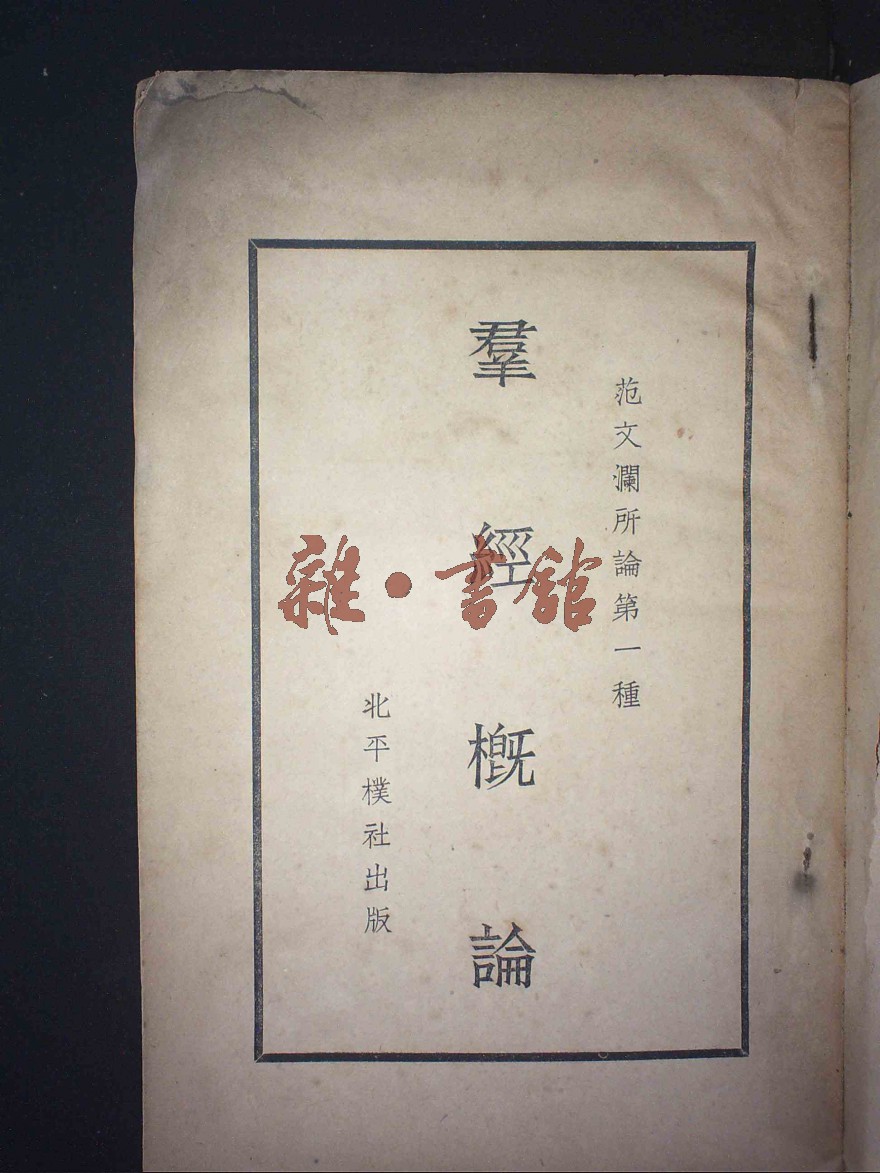 范文瀾所論第一種
羣經概論
北平樸社出版
雜·書館